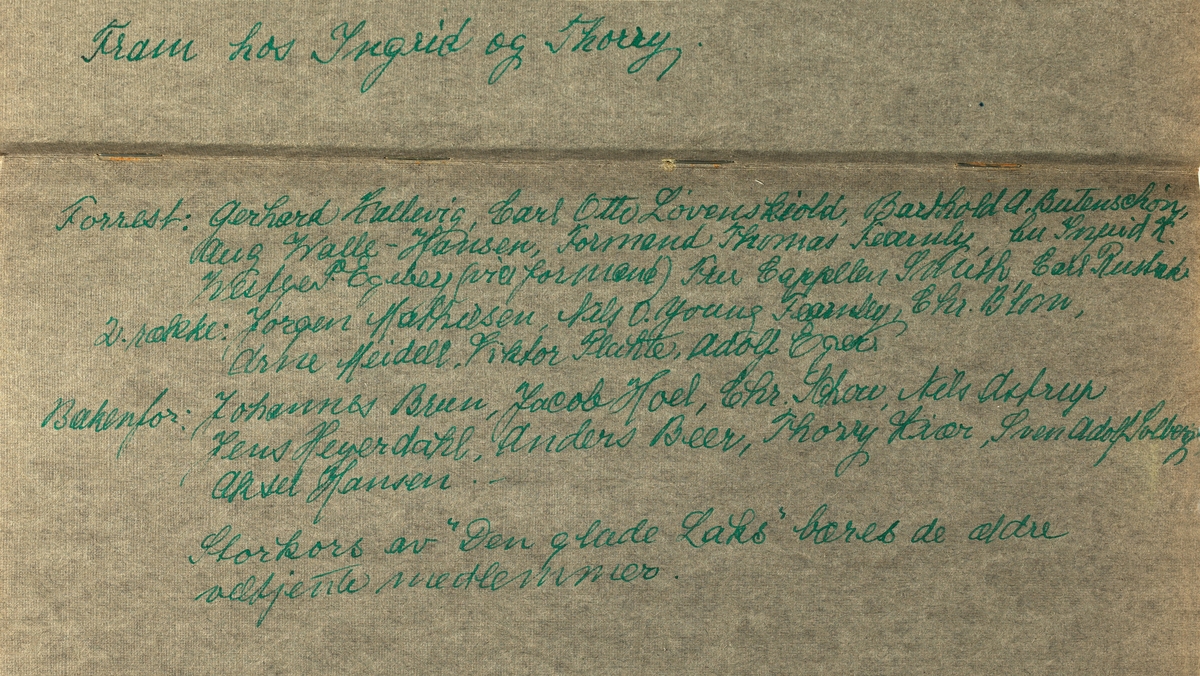 Fram hos Ingrid og Thorry.
Forrest: Gerhard Hallevig, Carl Otto Løvenskiold, Barthold A. Butenschön,
Aug Walle-Hansen, Formand Thomas Fearnly, fru Ingrid K.
Westye P. Egeberg (viceformand) Fru Cappelen Smith, Carl Rustad
2. række: Jørgen Mathiesen, Nils O. Young Fearnley, Chr. Blom,
Arne Meidell, Viktor Plahte, Adolf Eger
Bakenfor: Johannes Brun, Jacob Hoel, Chr. Schou, Nils Astrup
Jens Heyerdahl, Anders Beer, Thorry Kiær, Sven Adolf Solberg,
Aksel Hansen. -
Storkors av "Den glade Laks" bæres de ældre
velfjente medlemmer.